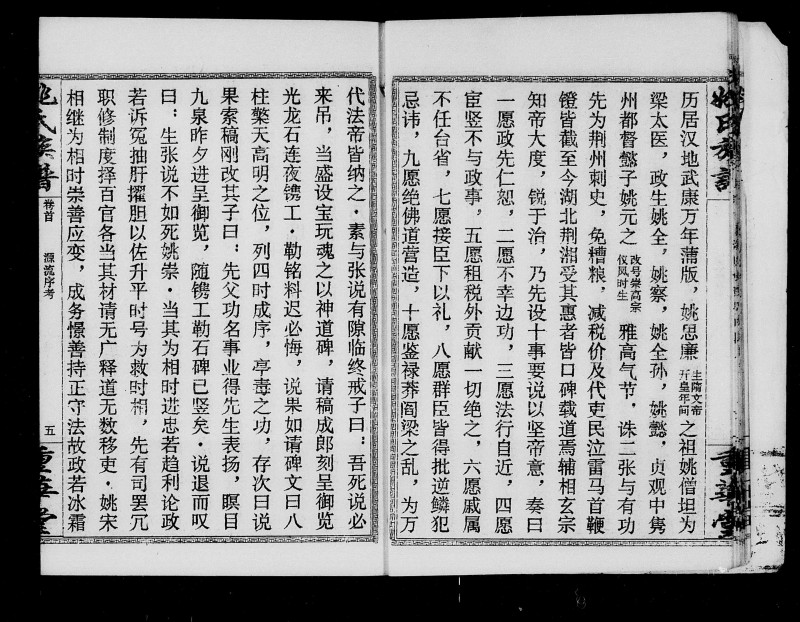 姚氏族谱
重华堂
历居汉地武康万年蒲版，姚思廉 生隋文帝开皇年间 之祖姚僧坦为
梁太医，政生姚全，姚察，姚全孙，姚懿，贞观中隽
州都督懿子姚元之 改号崇高宗仪凤时生 雅高气节，诛二张与有功
先为荆州刺史，免糟粮，减税价及代吏民泣雷马首鞭
镫皆截至今湖北荆湘受其惠者皆口碑载道焉辅相玄宗
知帝大度，锐于治，乃先设十事要说以坚帝意，奏曰
一愿政先仁恕，二愿不幸边功，三愿法行自近，四愿
宦竖不与政事，五愿租税外贡献一切绝之，六愿戚属
不任台省，七愿接臣下以礼，八愿群臣皆得批逆鳞犯
忌讳，九愿绝佛道营造，十愿鉴禄莽阎梁之乱，为万
代法帝皆纳之·素与张说有隙临终戒子曰：吾死说必
来吊，当盛设宝玩魂之以神道碑，请稿成郎刻呈御览
光龙石连夜镌工·勒铭料迟必悔，说果如请碑文曰八
柱檠天高明之位，列四时成序，亭毒之功，存次曰说
果索稿刚改其子曰：先父功名事业得先生表扬，瞑目
九泉昨夕进呈御览，随镌工勒石碑已竖矣·说退而叹
曰：生张说不如死姚崇·当其为相时进忠若趋利论政
若诉冤抽肝擢胆以佐升平时号为救时相，先有司罢冗
职修制度择百官各当其材请无广释道无数移吏·姚宋
相继为相时崇善应变，成务憬善持正守法故政若冰霜
姚氏族谱 卷首 源流序考 五 重华堂